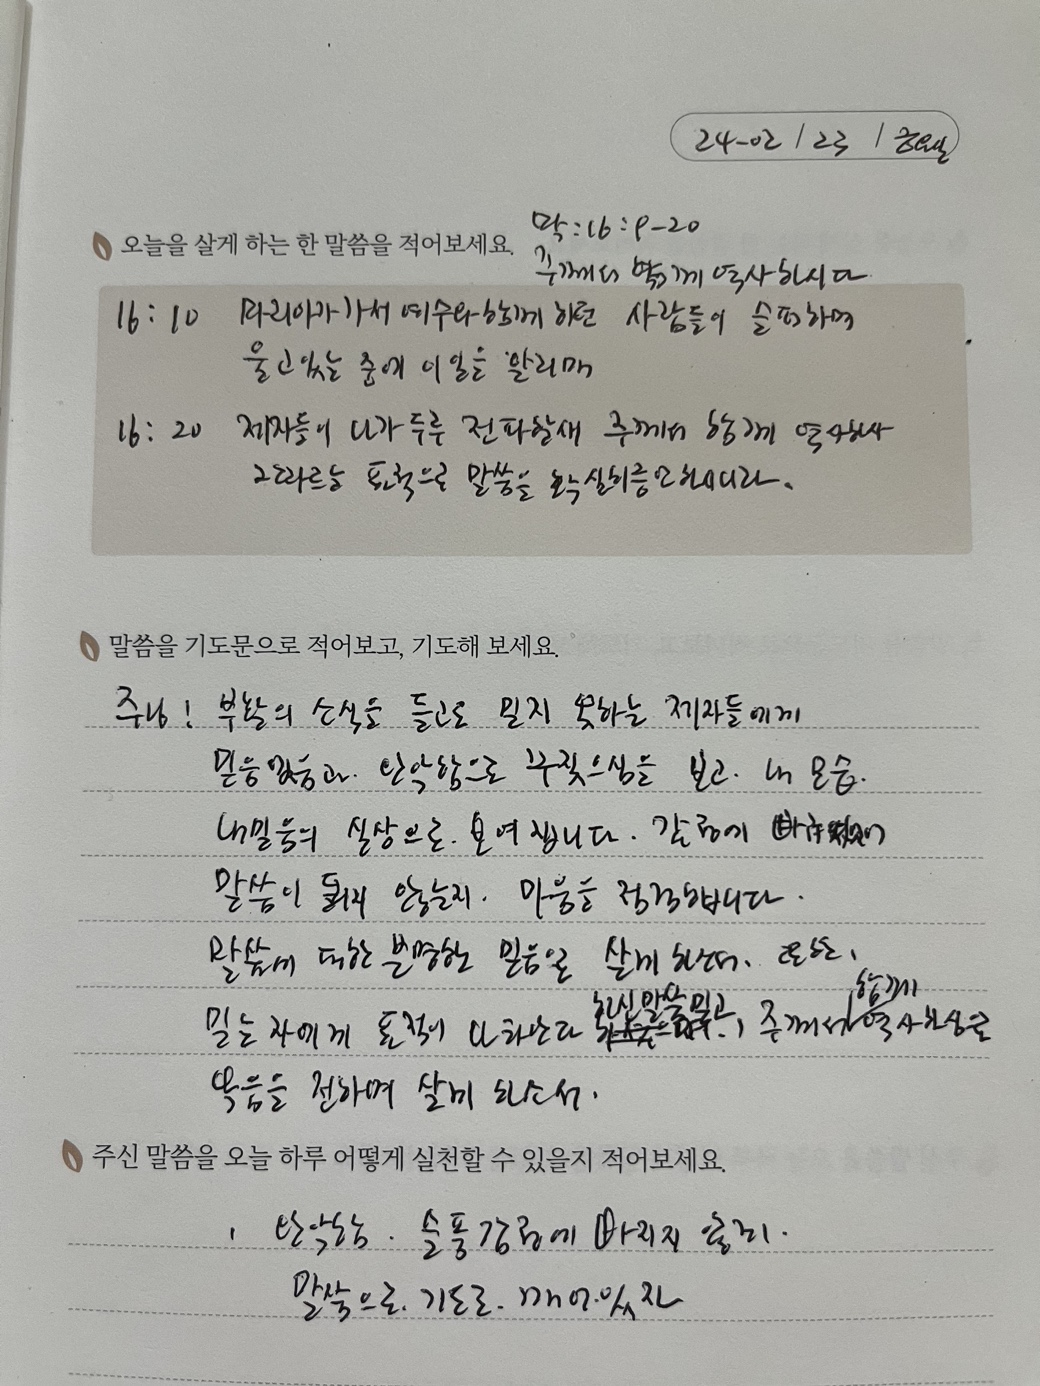 24-02 / 23 / 금요일
오늘을 살게 하는 한 말씀을 적어보세요.
막:16:9-20
주께서 함께 역사하시다
16:10 마리아가 가서 예수와 함께 하던 사람들이 슬퍼하며
울고 있는 중에 이 일을 알리매
16:20 제자들이 나가 두루 전파할새 주께서 함께 역사하사
그 따르는 표적으로 말씀을 확실히 증언하시니라.
말씀을 기도문으로 적어보고, 기도해 보세요.
주님! 부활의 소식을 듣고도 믿지 못하는 제자들에게
믿음없음과. 완악함으로 꾸짖으심을 보고. 내 모습.
내믿음의 실상으로. 보여집니다. 감정에
말씀이 되지 않는지. 마음을 점검합니다.
말씀에 대한 분명한 믿음으로 살게 하소서. 또한,
믿는 자에게 표적이 나타난다 하신 말씀 믿고, 주께서 함께 역사하심을
복음을 전하며 살게 하소서.
주신 말씀을 오늘 하루 어떻게 실천할 수 있을지 적어보세요.
완악함. 슬픔 감정에 빠지지 않기.
말씀으로. 기도로. 깨어.있자